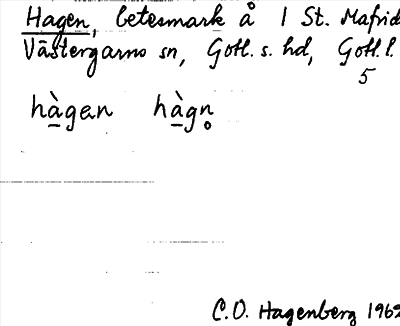 Hagen, betesmark å 1 St. Mafrid
Västergarns sn, Gotl. s. hd, Gotl. l.
5
hàgen hàgn̥
C.O. Hagenberg 1962